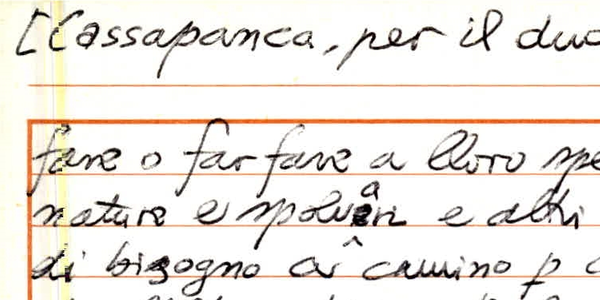 [Cassapanca, per il duo
fare o far fare a lloro spe
nature e spolveri e altri
di bisogno al camino p